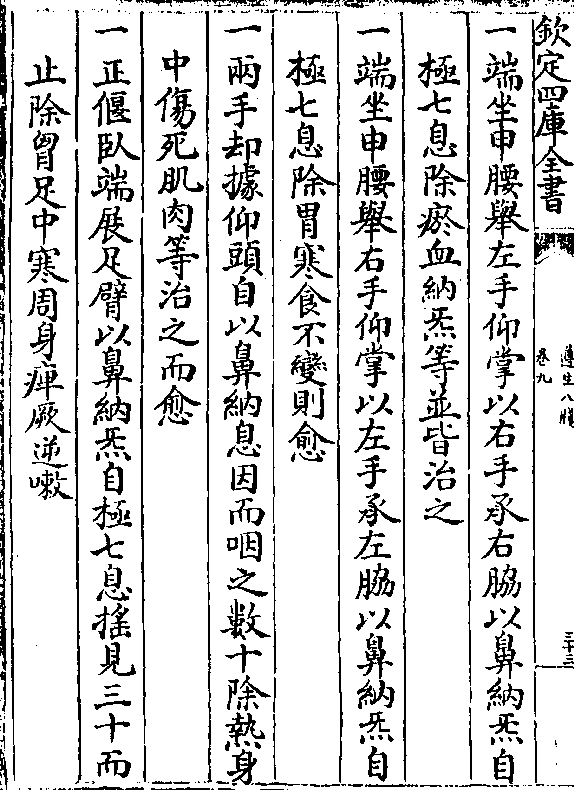 欽定四庫全書
遵生八牋
卷九
三十三
一端坐申腰舉左手仰掌以右手承右脇以鼻納炁自
極七息除瘀血納炁等並皆治之
一端坐申腰舉右手仰掌以左手承左脇以鼻納炁自
極七息除胃寒食不變則愈
一兩手却據仰頭自以鼻納息因而咽之數十除熱身
中傷死肌肉等治之而愈
一正偃臥端展足臂以鼻納炁自極七息搖見三十而
止除胷足中寒周身痺厥逆嗽